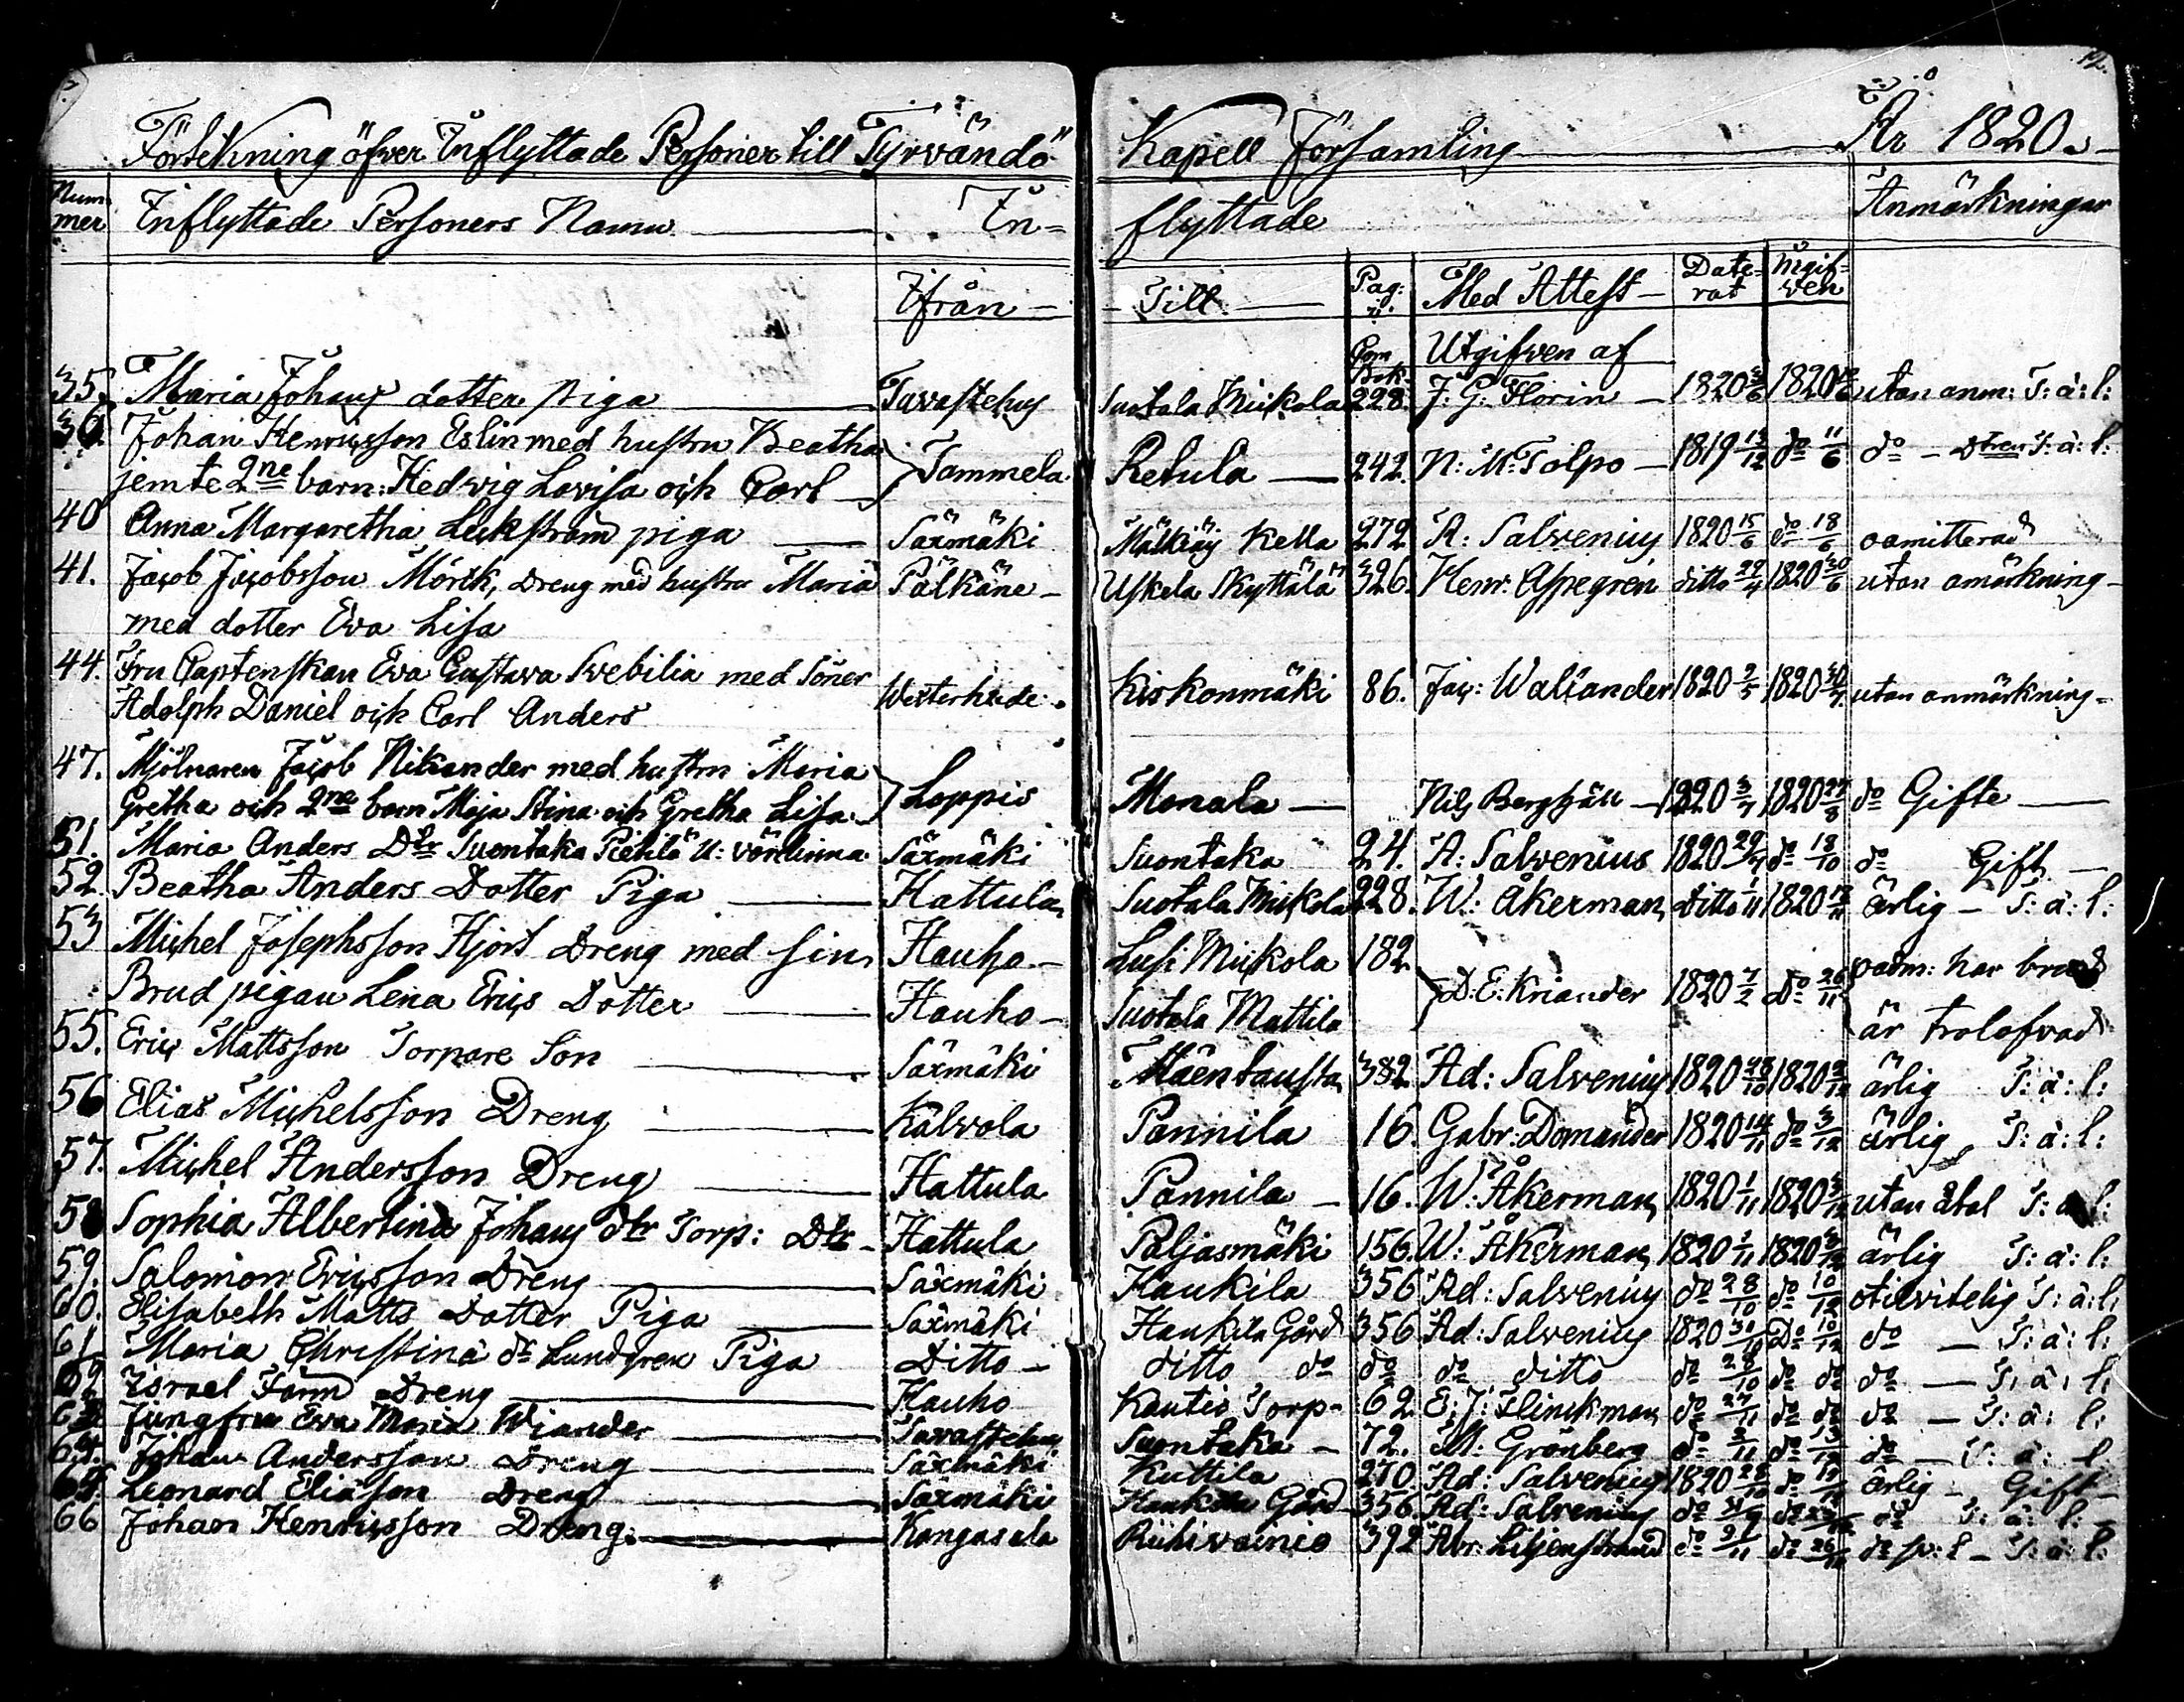 12.
Förtekning öfwer Inflyttade Personer till Tyrvändö Kapell Församling År 1820.
Nummer Inflyttade Personers Namn In= flyttade Anmärkningar
Ifrån Till Pag: Med Attest Date=rat Ingif=wen
Com Bok. Utgifwen af
35. Maria Johans dotter piga Tavastehus Suotala Mickola 228. J: G: Florin 1820 1820 utan anm: S: ä: l:
36 Johan Henricsson Eslin med hustru Beatha
jemte 2ne barn: Hedwig Lovisa och Carl Tammela Retula 242. N: M: Tolpo 1819 13/12 do 11/6 do S: ä: l:
40 Anna Margaretha Lekström piga Säxmäki Mälkiäj Kella 272 A: Salvenius 1820 15/6 do 18/6 oamitterad
41. Jacob Jacobsson Mörck, Dreng med hustru Maria Pälkäne Uskela Skyttälä 326. Henr: Aspegren ditto 29/4 1820 30/6 utan omärkning
med dotter Eva Lisa
44. Fru Captenskan Eva Gustava Svebilia med Söner
Adolph Daniel och Carl Anders Kiskonmäki 86. Jac: Waliander 1820 2/5 1820 utan anmärkning
47. Mjölnaren Jacob Nikander med hustru Maria
Gretha och 2ne barn Maja Stina och Gretha Lisa Loppis Monala Nils Bergfäll 1820 3/7 1820 27/8 do Gifte
51. Maria Anders Dtr Suontaka Pietilä U: värdinna Säxmäki Suontaka 24. A: Salvenius 1820 29/7 do 18/10 do Gift
52. Beatha Anders Dotter Piga Hattula Suotala Mickola 228. W: Åkerman ditto 1/11 1820 ärlig S: ä: l:
53 Michel Josephsson Hjort Dreng med sin Hauho Lusi Mickola 182 D: E: Kriander 1820 7/2 Do 26/11 oadm: har brud
Brud pigan Lena Erics Dotter Hauho Suotala Mattila är trolofvad
55. Eric Mattsson Torpare Son Säxmäki Mäentausta 382 Ad: Salvenius 1820 28/10 1820 2/12 ärlig S: ä: l:
56 Elias Michelsson Dreng Kalvola Pannila 16. Gabr: Domander 1820 14/11 do 3/12 ärlig S: ä: l:
57. Michel Andersson Dreng Hattula Pannila 16. W: Åkerman 1820 1/11 1820 3/12 utan åtal S: ä: l:
58 Sophia Albertina Johans dtr Torp: Dtr Hattula Paljasmäki 156. W: Åkerman 1820 1/11 1820 ärlig S: ä: l:
59. Salomon Ericsson Dreng Säxmäki Haukila 356 Ad: Salvenius do 28/10 do 10/12 otievitelig S: ä: l:
60. Elisabeth Matts Dotter Piga Säxmäki Haukila Gård 356 Ad: Salvenius 1820 Do 10/12 do S: ä: l:
61 Maria Christina dr Lundgren Piga Ditto ditto do do do ditto do 28/10 do do do S: ä: l:
62 Israel Färm Dreng Hauho Kautio Torp 62. E: J: Flinckman do 27/11 do do do S: ä: l:
63 Jungfru Eva Maria Wiander Tavastehus Suontaka 72. M: Grönberg do 3/11 do 13/12 do S: ä: l:
64. Johan Andersson Dreng Säxmäki Kuttila 270. Ad: Salvenius 1820 28/10 do ärlig Gift
65. Leonard Eliäson Dreng Säxmäki Haukila Gård 356. Ad: Salvenius do do do S: ä: l:
66 Johan Henricsson Dreng. Kangasala Riihivainio 392 Abr: Liljenstrand do 21/11 do 26/12 do S: ä: l: